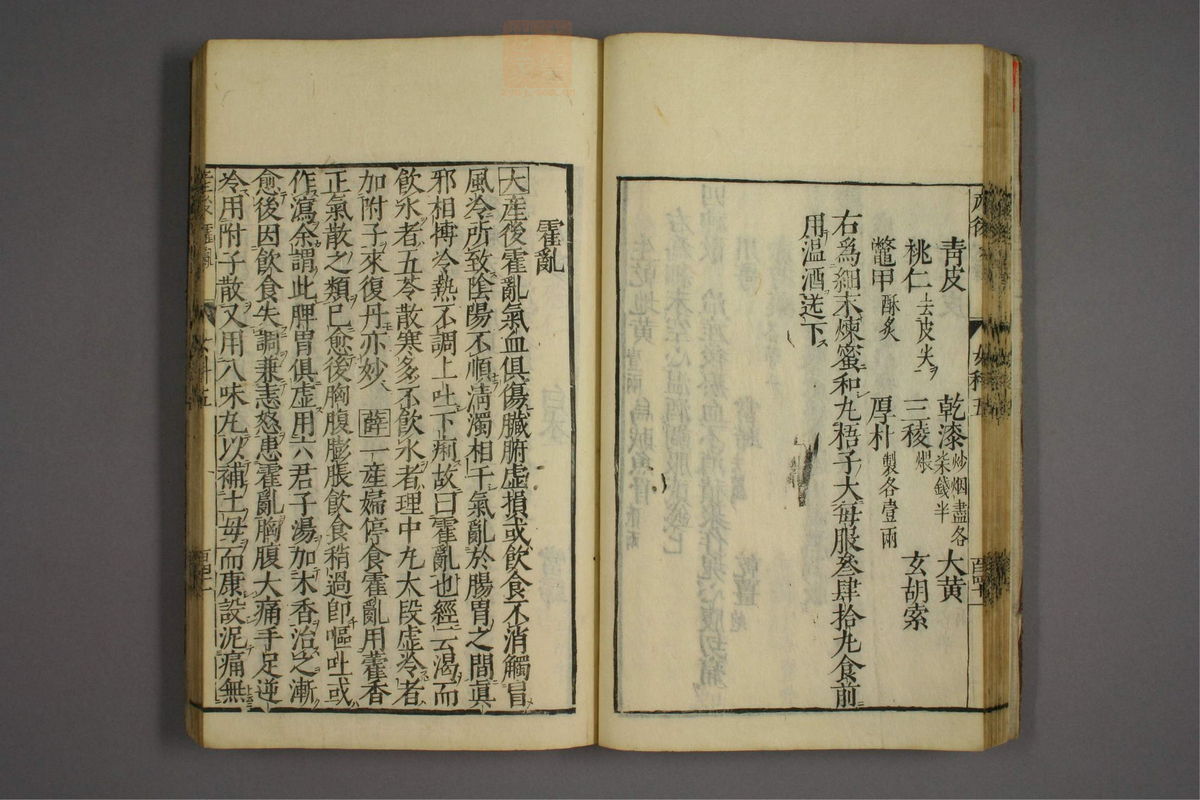 產後 女科五
青皮 乾漆炒烟盡各柒錢半 大黄
桃仁去皮尖 三稜煨 玄胡索
鼈甲酥炙 厚朴製各壹兩
右爲細末煉蜜和丸梧子大每服叁肆拾丸食前
用温酒送下
霍亂
大產後霍亂氣血俱傷臟腑虛損或飲食不消觸冒
風冷所致陰陽不順清濁相干氣亂於腸胃之間眞
邪相搏冷熱不調上吐下痢故曰霍亂也經云渴而
飲水者五苓散寒多不飲水者理中丸大段虛冷者
加附子來復丹亦妙 薛一產婦停食霍亂用藿香
正氣散之類已愈後胸腹膨脹飲食稍過卽嘔吐或
作瀉余謂此脾胃俱虛用六君子湯加木香治之漸
愈後因飲食失調兼恚怒患霍亂胸腹大痛手足逆
冷用附子散又用八味丸以補土母而康設泥痛無
女科五